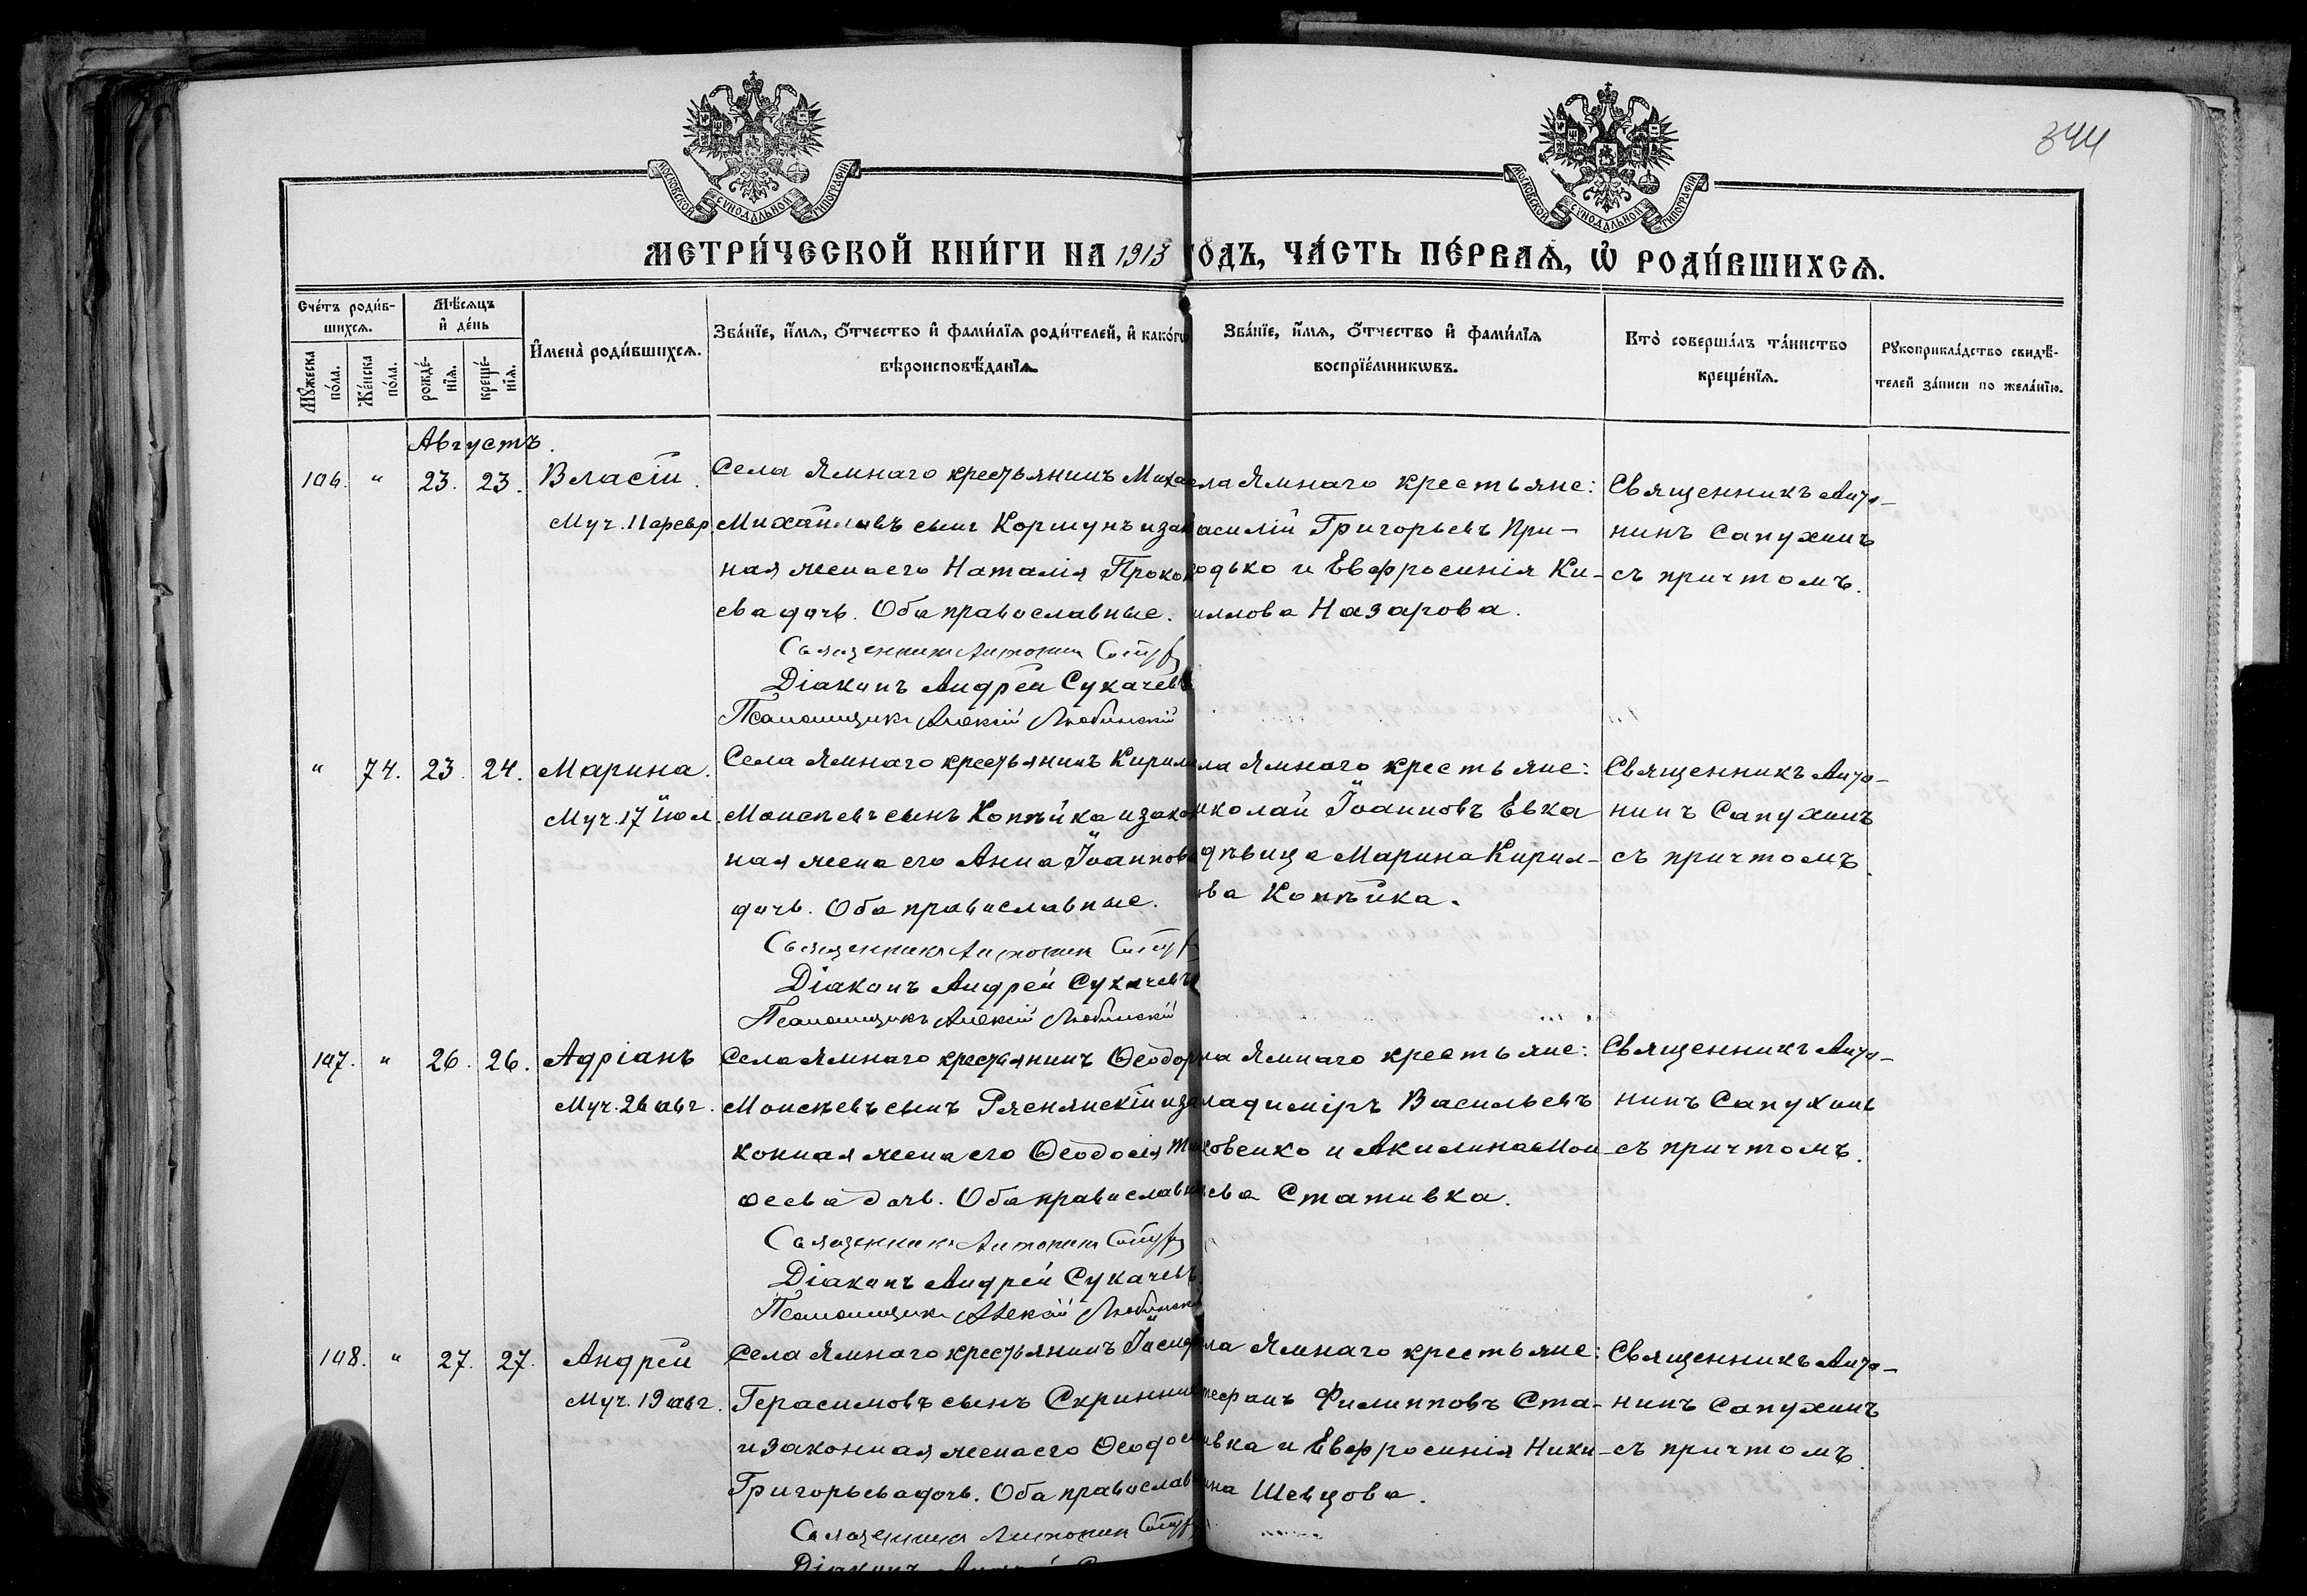 344
МОСКОВСКОЙ СУНОДАЛЬНОЙ ТИПОГРАФІИ
МОСКОВСКОЙ СУНОДАЛЬНОЙ ТИПОГРАФІИ
МЕТРИ́ЧЕСКОЙ КНИ́ГИ НА 1913 ГОДЪ, ЧА́СТЬ ПЕ́РВАѦ, Ѡ҆ РОДИ́ВШИХСѦ.
Сче́тъ роди́в-
шихсѧ.
Мꙋ́жеска по́ла.
Же́нска по́ла.
Мѣ́сѧцъ
и҆ де́нь
рожде́-нїѧ.
креще́-нїѧ.
И҆мена̀ роди́вшихсѧ.
Зва́нїе, и҆́мѧ, ѻ҆́тчество и҆ фами́лїѧ роди́телей, и҆ како́гѡ
вѣроисповѣ́данїѧ.
Зва́нїе, и҆́мѧ, ѻ҆́тчество и҆ фами́лїѧ
воспрїе́мникѡвъ.
Кто̀ соверша́лъ та́инство
креще́нїѧ.
Рꙋкоприкла́дство свидѣ́-
телей за́писи по жела́нїю.
Августъ.
106. " 23. 23. Власій. Села Ямнаго крестьянинъ Миха
Муч. 11 февр. Михайловъ сынъ Коршунъ и зак
ная жена его Наталія Проко
ева дочь. Оба православные.
Священникъ Антонин
Діаконъ Андрей Сукачевъ
Псаломщикъ Алексій Любинскій
ла Ямнаго крестьяне:
асилій Григорьевъ При-
одько и Евфросинія Ки-
иллова Назарова.
Священникъ Анто-
нинъ Сапухинъ
съ причтомъ.
" 74. 23. 24. Марина. Села Ямнаго крестьянинъ Кирил
Муч. 17 іюл. Моисеевъ сынъ Копѣйка и закон
ная жена его Анна Іоаннова
дочь. Оба православные.
Священникъ Антонин
Діаконъ Андрей Сукачевъ
Псаломщикъ Алексій Любинскій
ла Ямнаго крестьяне:
иколай Іоанновъ Евка
дѣвица Марина Кирил-
ова Копѣйка.
Священникъ Анто-
нинъ Сапухинъ
съ причтомъ.
107. " 26. 26. Адріанъ Села Ямнаго крестьянинъ Ѳеодор
Муч. 26 авг. Моисѣевъ сынъ Ряснянскій и за
конная жена его Ѳеодосія Тим
оѳеева дочь. Оба православн
Священникъ Антонин
Діаконъ Андрей Сукачевъ
Псаломщикъ Алексій Любинскій
ла Ямнаго крестьяне:
ладиміръ Васильевъ
ковенко и Акилина Мои
сева Стативка.
Священникъ Анто-
нинъ Сапухинъ
съ причтомъ.
108. " 27. 27. Андрей Села Ямнаго крестьянинъ Іосиф
Муч. 19 авг. Герасимовъ сынъ Скринник
и законная жена его Ѳеодос
Григорьева дочь. Оба православ
Священникъ Антонин
ла Ямнаго крестьяне:
тефанъ Филипповъ Ста-
ивка и Евфросинія Ники-
ина Шевцова.
Священникъ Анто-
нинъ Сапухинъ
съ причтомъ.